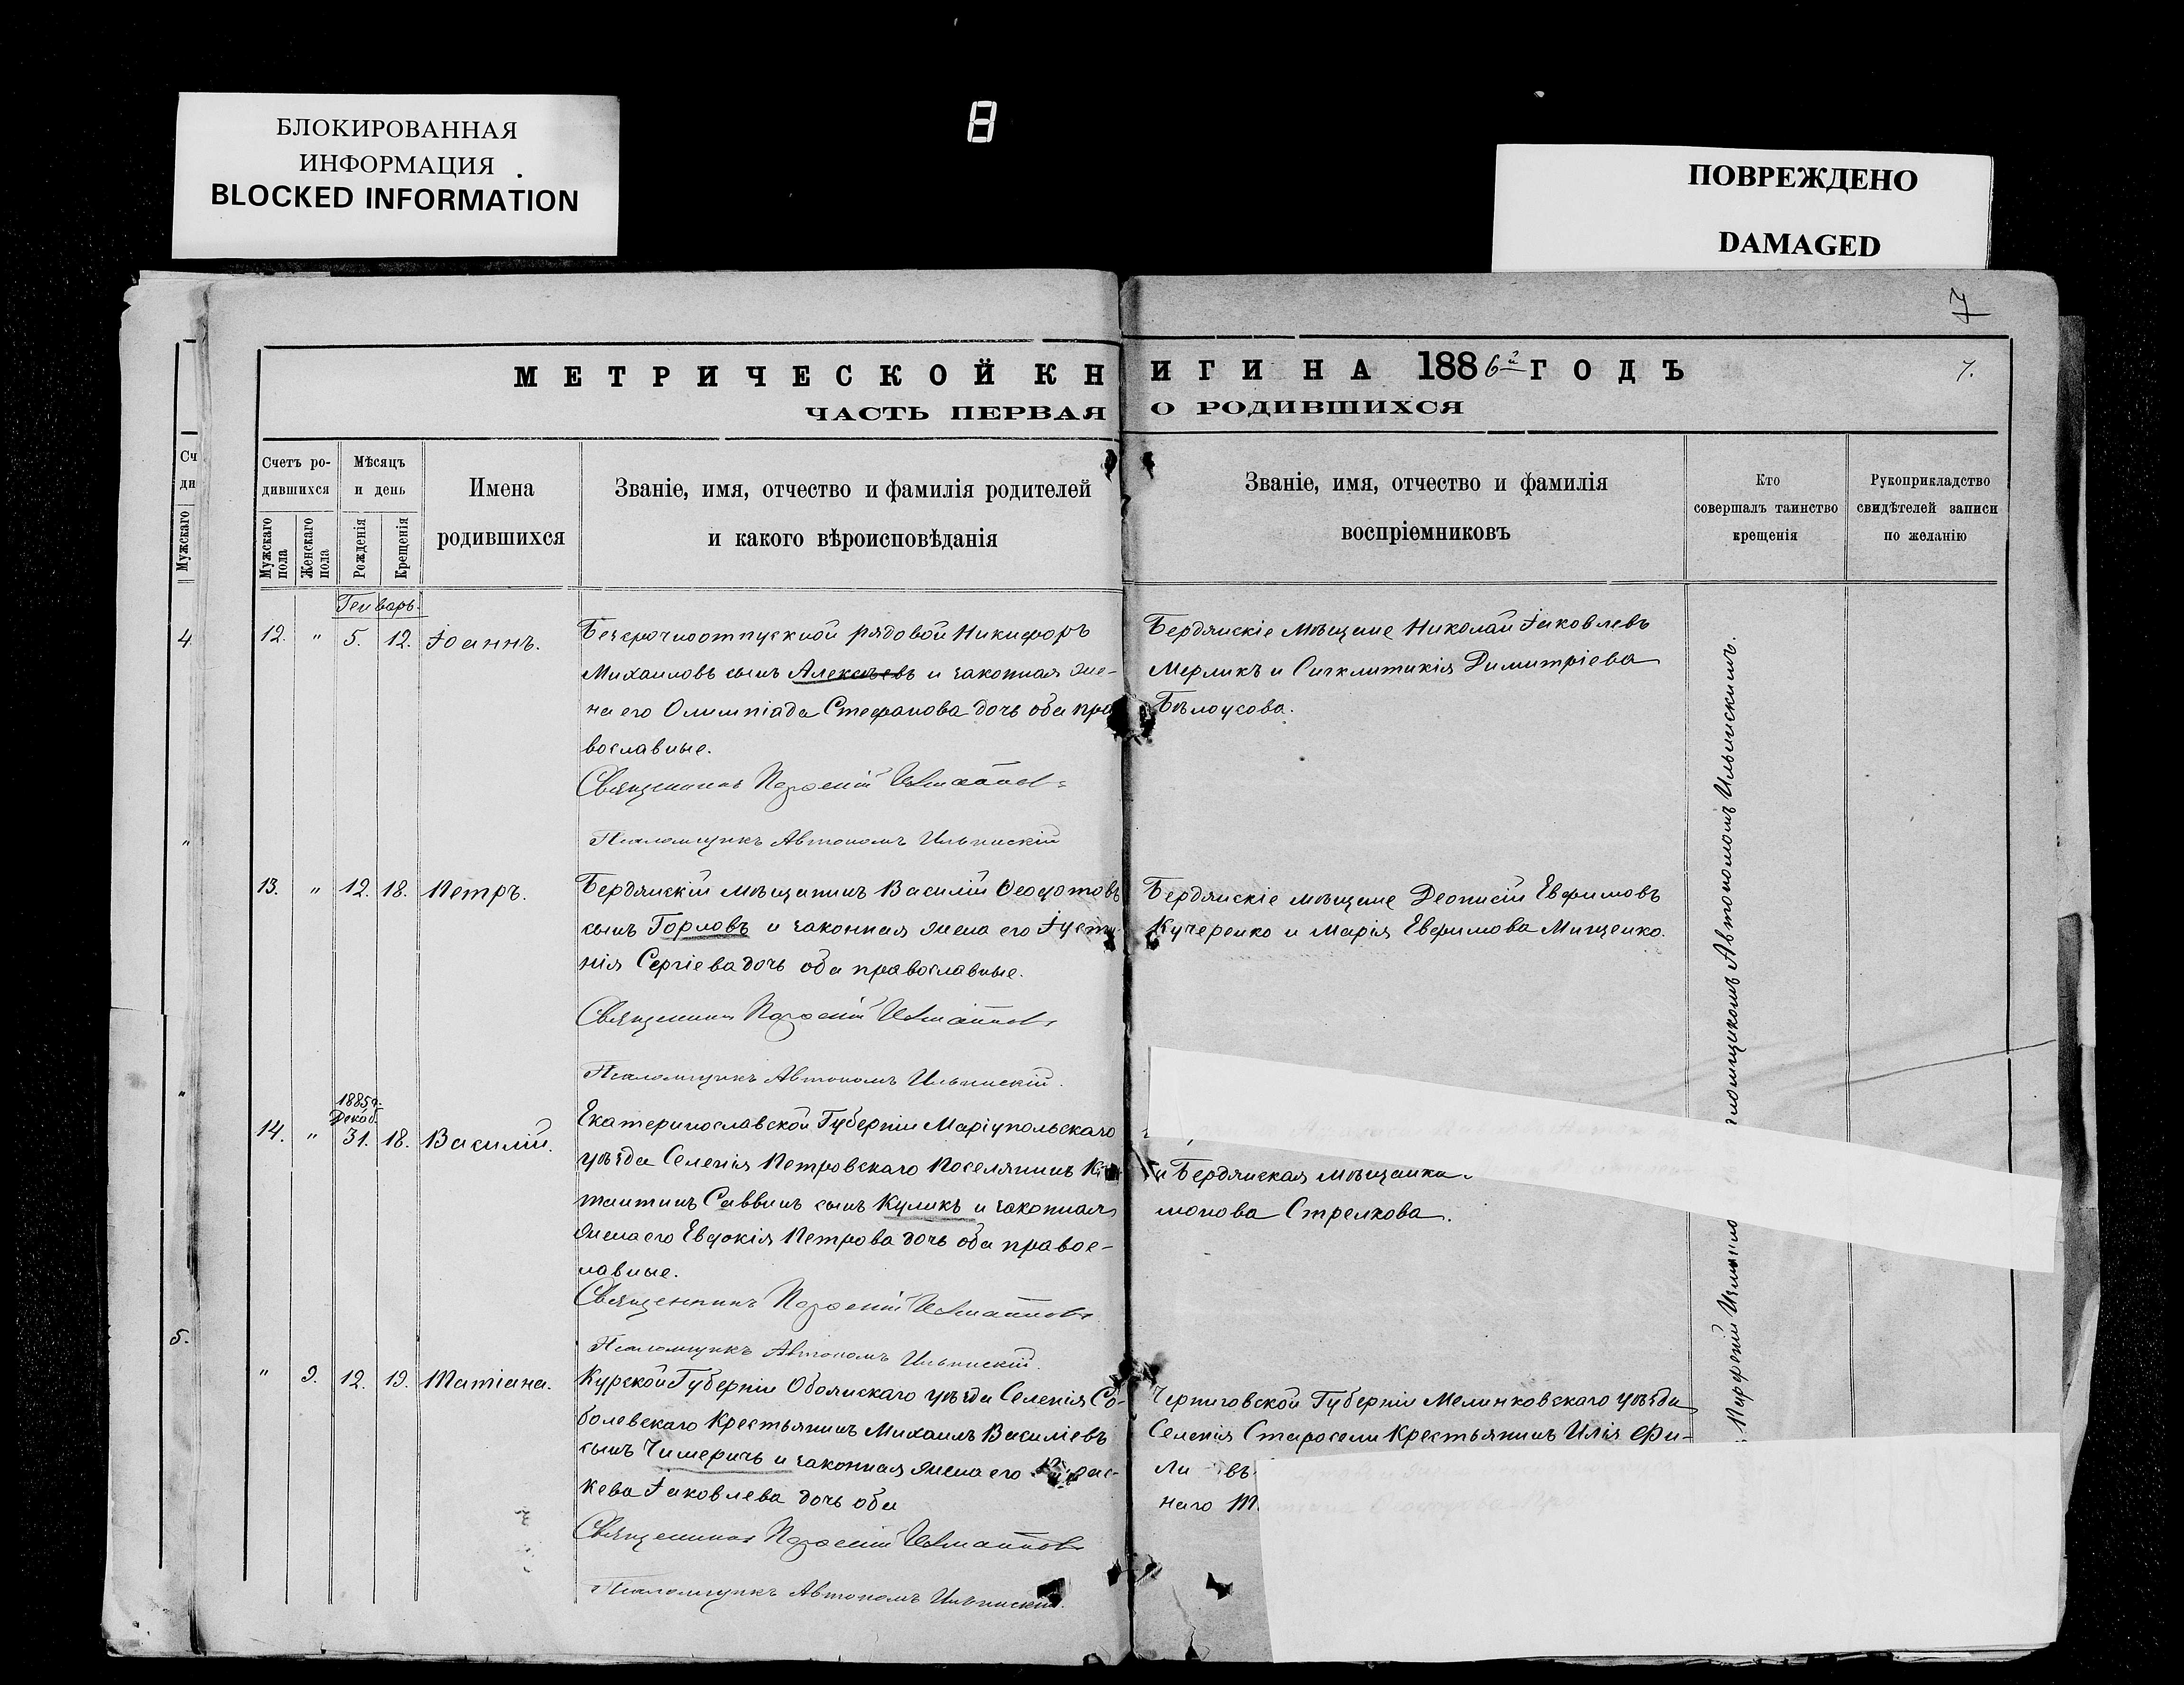 БЛОКИРОВАННАЯ
ИНФОРМАЦИЯ
BLOCKED INFORMATION
8
ПОВРЕЖДЕНО
DAMAGED
7
МЕТРИЧЕСКОЙ КНИГИ НА 1886й ГОДЪ
7.
ЧАСТЬ ПЕРВАЯ О РОДИВШИХСЯ
Сч
ди
Мужскаго
Счетъ ро-
дившихся
Мужскаго пола
Женскаго пола
Мѣсяцъ
и день
Рожденія
Крещенія
Имена
родившихся
Званіе, имя, отчество и фамилія родителей
и какого вѣроисповѣданія
Званіе, имя, отчество и фамилія
воспріемниковъ
Кто
совершалъ таинство
крещенія
Рукоприкладство
свидѣтелей записи
по желанію
Генварь.
4.
12. " 5. 12. Іоаннъ.
Безсрочноотпускной рядовой Никифоръ
Михаиловъ сынъ Алексѣевъ и законная же-
на его Олимпіада Стефанова дочь оба пра
вославные.
Священникъ Парфеній
Псаломщикъ Автономъ Ильинскій
Бердянскіе мѣщане Николай Іаковлевъ
Мерликъ и Сигклитикія Димитріева
Бѣлоусова.
"
13. " 12. 18. Петръ.
Бердянскій мѣщанинъ Василій Ѳеодотовъ
сынъ Горловъ и законная жена его Іусти
нія Сергіева дочь оба православные.
Священникъ Парфеній
Псаломщикъ Автономъ Ильинскій.
Бердянскіе мѣщане Деонисій Евфимовъ
Кучеренко и Марія Евфимова Мищенко.
"
1885г.
Декаб.
14. " 31. 18. Василій.
Екатеринославской Губерніи Маріупольскаго
уѣзда Селенія Петровскаго Поселянинъ К
тантинъ Саввинъ сынъ Куликъ и законная
жена его Евдокія Петрова дочь оба правос-
лавные.
Священникъ Парфеній
Псаломщикъ Автономъ Ильинскій.
и Бердянская мѣщанка
монова Стрелкова.
5.
" 9. 12. 19. Татіана.
Курской Губерніи Обоянскаго уѣзда Селенія Со-
болевскаго Крестьянинъ Михаилъ Василіевъ
сынъ Чимеричь и законная жена его Парас-
кева Іаковлева дочь оба
Священникъ Парфеній
Псаломщикъ Автономъ Ильинскій.
Черниговской Губерніи Мелинковскаго уѣзда
Селенія Старосели Крестьянинъ Илія Фи-
ли въ
наго Т
Парфеній
ломщикомъ Автономомъ Ильинскимъ.